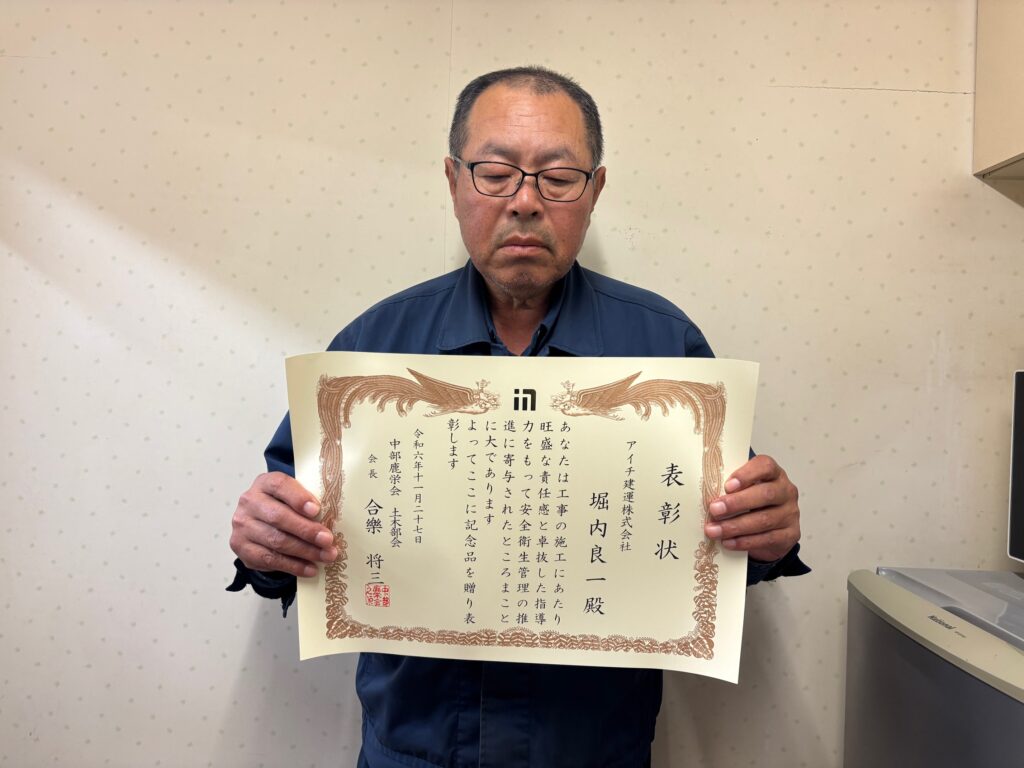 表彰状
アイチ建運株式会社
堀内良一殿
あなたは工事の施工にあたり
旺盛な責任感と卓抜した指導
力をもって安全衛生管理の推
進に寄与されたところまこと
に大であります
よってここに記念品を贈り表
彰します
令和六年十一月二十七日
中部鹿栄会 土木部会
会長 合樂 将三
National